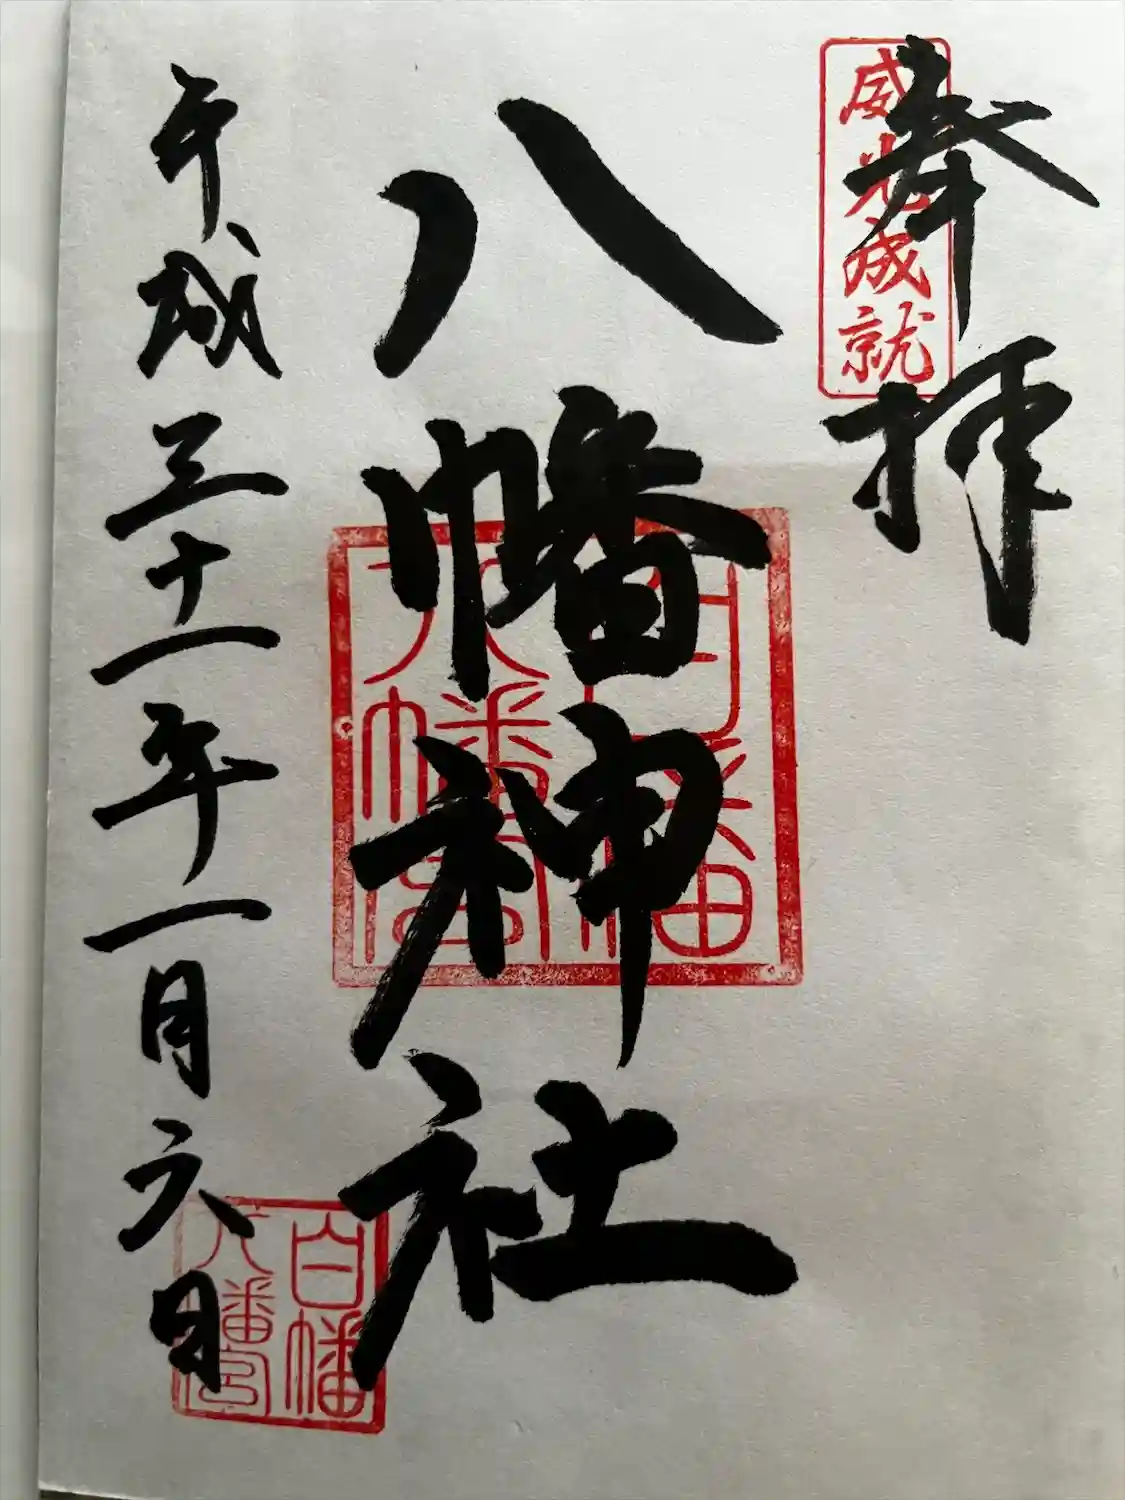 奉拝
威光成就
八幡神社
白幡
八幡宮
平成三十一年一月六日
白幡
八幡宮